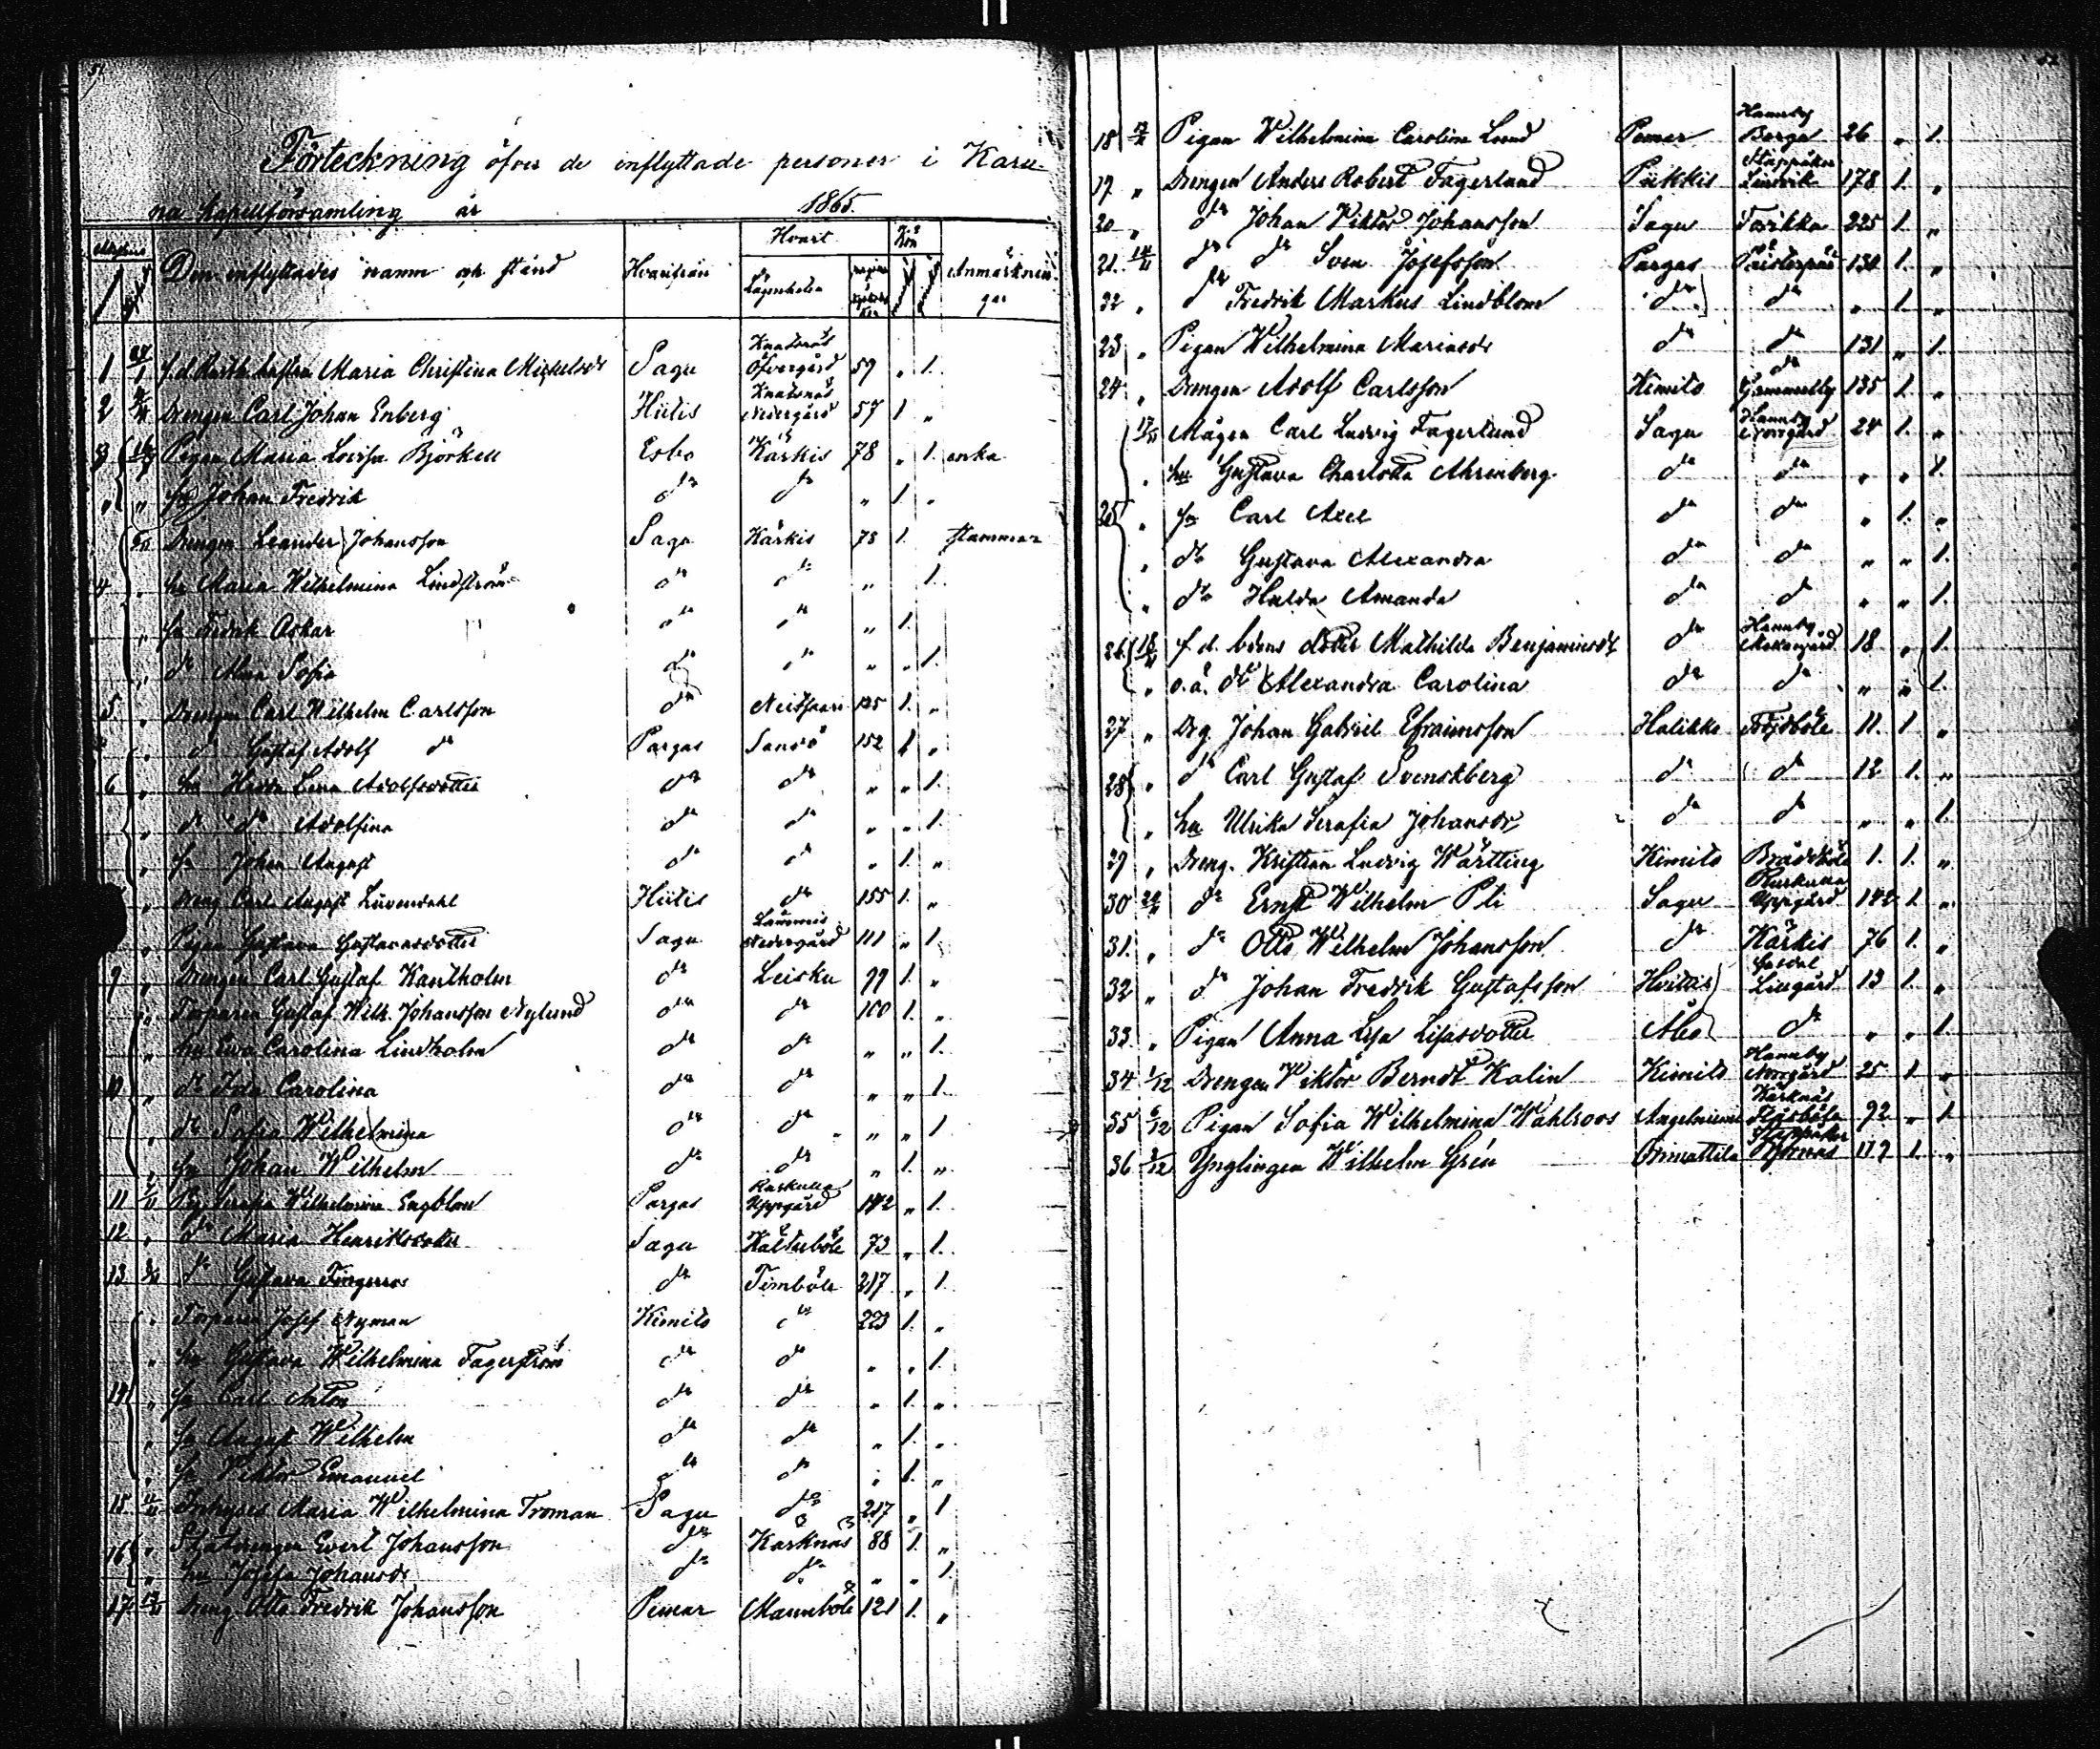 51
Förteckning öfver de inflyttade personer i Karu-
na Kapellförsamling år 1865.
Den inflyttades namn och stånd Hvarifrån Hvart Kön
Lägenheten Anmärknin-
gar
Knaasnäs
1 f.d. Maria Christina Michelsdr Sagu Öfvergård 59 „ 1.
Knaasnäs
2 Drengen Carl Johan Enberg Hitis Nedergård 57 1 „
3 Pigan Maria Lovisa Björkell Esbo Kärkis 78 „ 1. enka
„ „ sn Johan Fredrik do do „ 1. „
Drengen Leander Johansson Sagu Kärkis 78 1.
4 „ hu Maria Wilhelmina Lindström do do „ 1.
„ sn Fredrik Oskar do do „ 1.
„ dr Alma Sofia do do „ „ 1.
5. „ Drengen Carl Wilhelm Carlsson do 125 1. „
„ do Gustaf Adolf do Pargas Sandö 152 1 „
6 „ hu Hedda Lena Adolfsdotter do do „ „ 1.
„ dr do Adolfina do do „ „ 1.
„ sn Johan August do do „ 1. „
„ Dreng Carl August Hitis do 155 1. „
„ Pigan Gustava Gustavasdotter Sagu Nedergård 111 „ 1
9 „ Drengen Carl Gustaf Kantholm do Leisku 99 1. „
„ Torparen Gustaf Wilh. Johansson Nylund do do 100 1. „
„ hu Eva Carolina Lindholm do do „ „ 1.
10 „ dr Ida Carolina do do „ „ 1.
„ dr Sofia Wilhelmina do do „ „ 1
„ sn Johan Wilhelm do do „ 1. „
11 Pig. Serafia Wilhelmina Engblom Pargas Uppgård 142 „ 1.
12. „ do Maria Henriksdotter Sagu 73 „ 1.
13 do Gustava Fingerroos do Timböle 217 „ 1
„ Torparen Josef Nyman Kimito do 223 1. „
„ hu Gustava Wilhelmina Fagerström do do „ „ 1.
14 „ sn Carl Anton do do „ 1. „
„ sn August Wilhelm do do „ 1. „
„ sn Viktor Emanuel do do „ 1. „
15. Inhyses Maria Wilhelmina Troman Sagu do 217 „ 1
16 „ Evert Johansson do Karknäs 88 1. „
„ hu Josefa Johansdr do do „ „ 1.
17. Dreng. Otto Fredrik Johansson Pemar Manneböle 121 1. „
52
Hanneby
18 Pigan Wilhelmina Carolina Lund Pemar Borga 26 „ 1.
19 „ Drengen Anders Robert Fagerlund Piikkis 178 1. „
20 „ do Johan Viktor Johansson Sagu 225 1. „
21. do do Sven Josefsson Pargas 130 1. „
22 „ do Fredrik Markus Lindblom do do „ 1. „
23 „ Pigan Wilhelmina Mariasdr do do 131 „ 1.
24 „ Drengen Adolf Carlsson Kimito Gammelby 135 1. „
Hanneby
Mågen Carl Ludvig Fagerlund Sagu Norrgård 24 1. „
„ hu Gustava Charlotta Ahrenberg do do „ „ 1.
25 „ sn Carl Axel do do „ 1. „
„ dr Gustava Alexandra do do „ „ 1.
„ dr Hulda Amanda do do „ „ 1.
Hanneby
26. f.d. dotter Mathilda Benjaminsdr do 18 „ 1.
„ o.ä. dr Alexandra Carolina do do „ „ 1.
27 „ Drg. Johan Gabriel Efraimsson Halikko Fröjdböle 11. 1. „
28 „ do Carl Gustaf Svenskberg do do 12 1. „
„ hu Ulrika Serafia Johansdr do do „ „ 1.
29 „ Dreng. Kristian Ludvig Wärtting Kimito 1. 1. „
30 do Ernst Wilhelm Sagu Uppgård 142 1. „
31. „ do Otto Wilhelm Johansson do Kärkis 76 1. „
32 „ do Johan Fredrik Gustafsson Hvittis Lillgård 13 1. „
33. „ Pigan Anna Lisa Lisasdotter Åbo do „ „ 1.
Hanneby
34 1/12 Drengen Viktor Berndt Kalin Kimito Norrgård 25 1 „
Karknäs
35 6/12 Pigan Sofia Wilhelmina Wahlroos Angelniemi 92 „ 1
36 Ynglingen Wilhelm Grén 119 1. „